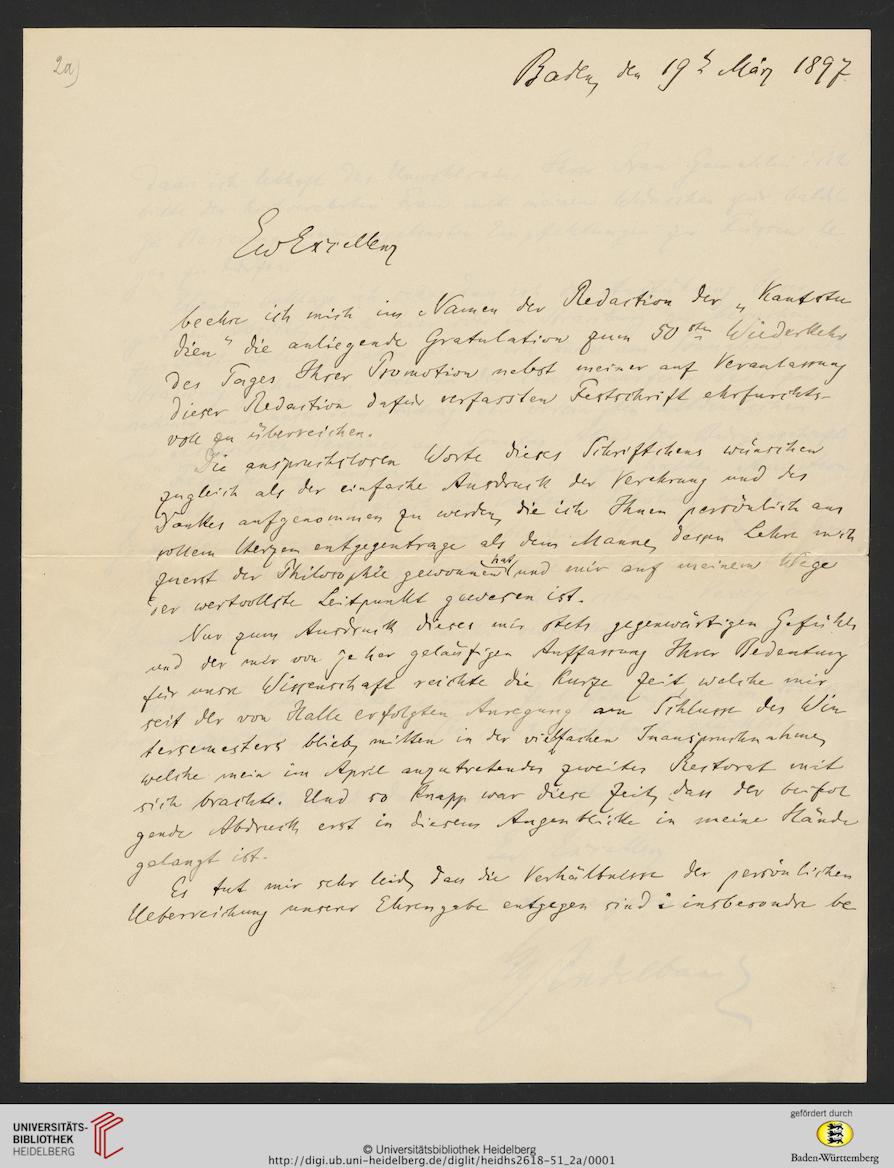 2a)
Baden, den 19t März 1897.
Ew Excellenz
beehre ich mich im Namen der Redaction der „Kantstu
dien" die anliegende Gratulation zum 50sten Wiederkehr
des Tages Ihrer Promotion nebst meiner auf Veranlassung
dieser Redaction dafür verfassten Festschrift ehrfurchts-
voll zu überreichen.
Die anspruchslosen Worte dieses Schriftchens wünschen
zugleich als der einfache Ausdruck der Verehrung und des
Dankes aufgenommen zu werden, die ich Ihnen persönlich aus
vollem Herzen entgegentrage als dem Manne, dessen Lehre mich
zuerst der Philosophie gewonnen hat, und mir auf meinem Wege
der wertvollste Leitpunkt gewesen ist.
Nur zum Ausdruck dieses mir stets gegenwärtigen Gefühls
und der mir von jeher geläufigen Auffassung Ihrer Bedeutung
für unsre Wissenschaft reichte die kurze Zeit, welche mir
seit der von Halle erfolgten Anregung am Schlusse des Win
tersemesters blieb, mitten in der vielfachen Inanspruchnahme,
welche mein im April anzutretendes zweites Rectorat mit
sich brachte. Und so knapp war diese Zeit, dass der beifol
gende Abdruck erst in diesem Augenblicke in meine Hände
gelangt ist.
Es tut mir sehr leid, dass die Verhältnisse der persönlichen
Ueberreichung unserer Ehrengabe entgegen sind: insbesondre be
UNIVERSITÄTS-
BIBLIOTHEK
HEIDELBERG
© Universitätsbibliothek Heidelberg
http://digi.ub.uni-heidelberg.de/diglit/heidhs2618-51_2a/0001
gefördert durch
Baden-Württemberg